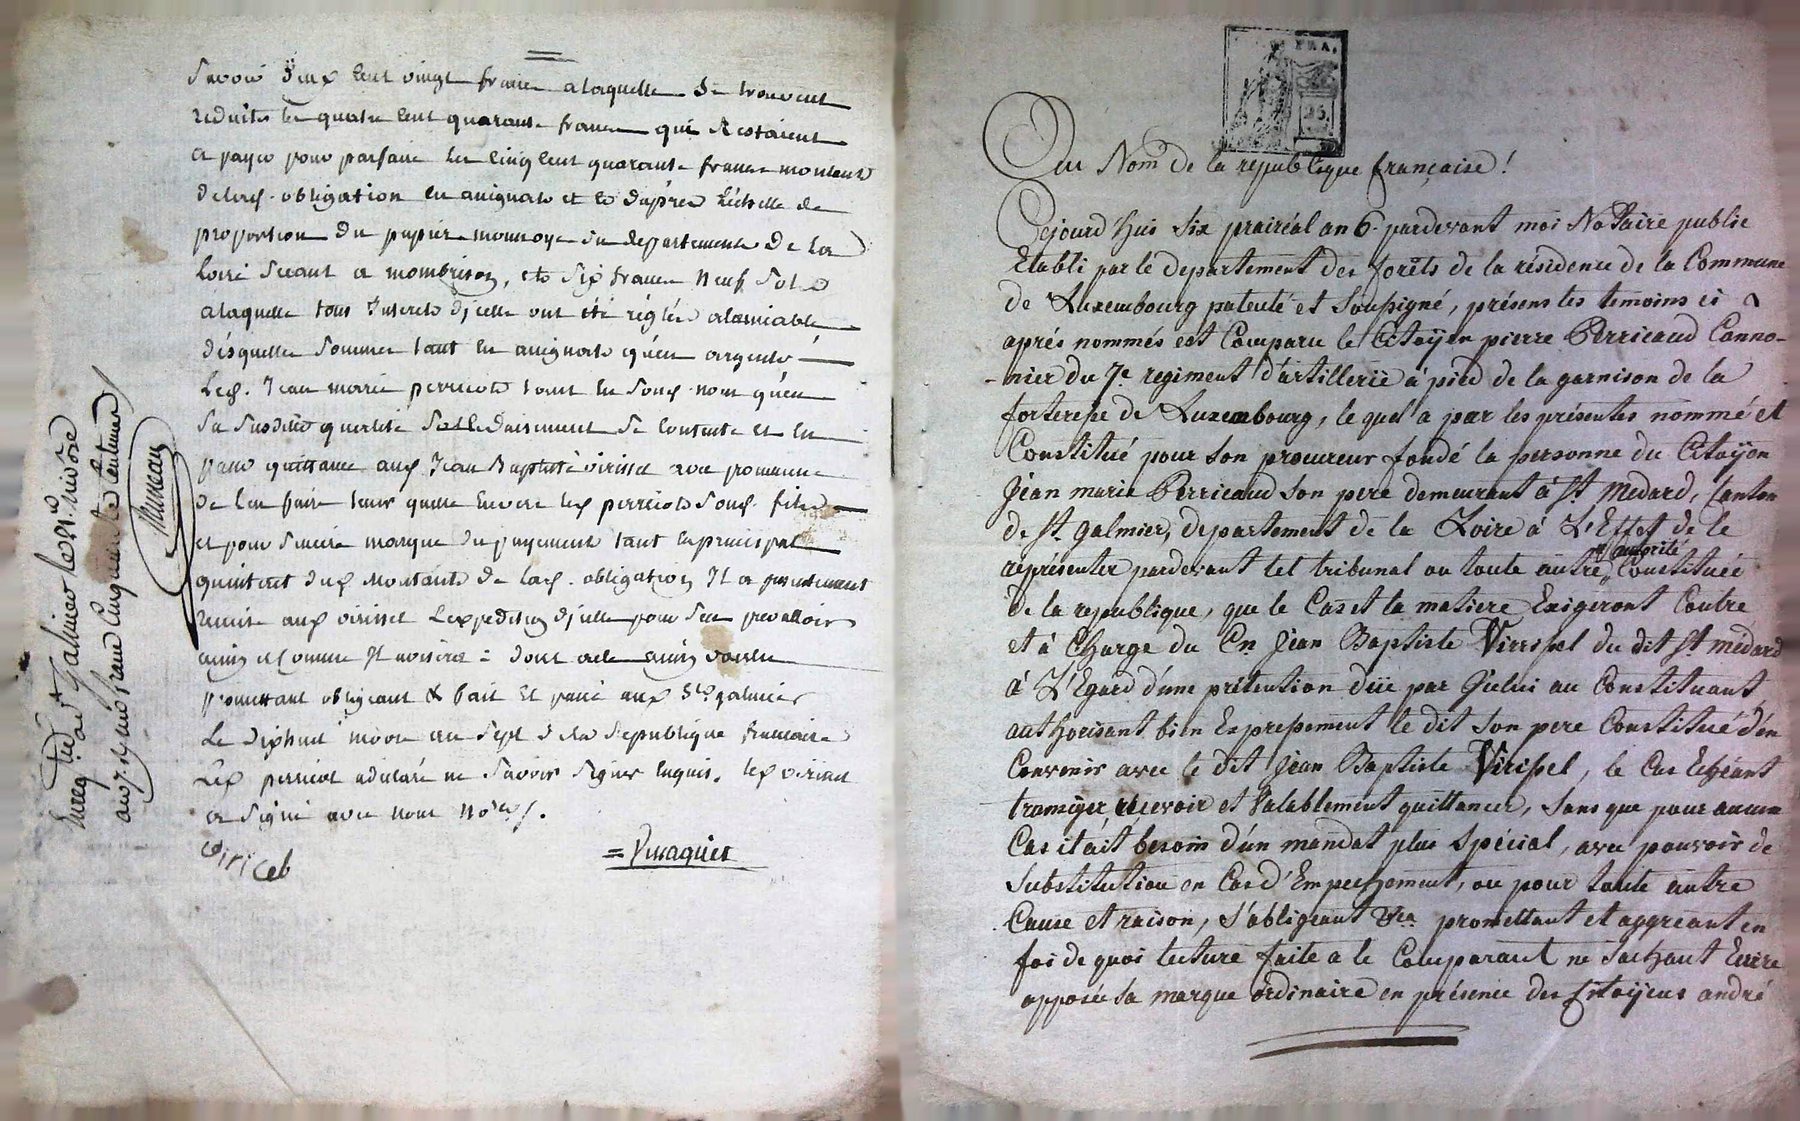 Savoir deux cent vingt francs a laquelle se trouvent
reduites les quatre cent quarante francs qui restoient
a payer pour parfaire les cinq cent quarante francs montant
de lad. obligation en assignats et ce d'après l'échelle de
proportion du papier monnoye du departement de la
Loire séant a mombrison, et six francs neuf sols
a laquelle tous interets d'jcelle ont été réglés alamiable
desquelles sommes tant en assignats qu'en argent
led. Jean marie perricod tant en son nom qu'en
sa susditte qualité se contente et en
passe quittance aud. Jean Baptiste virissel avec promesse
de l'en faire tenir quitte envers led. perricod son fils
et pour sincere marque du payement tant en principal
qu'interet du montant de lad. obligation Il a presentement
remis aud virissel l'expedition d'jcelle pour s'en prevalloir
ainsi et comme Il avisera : dont acte ainsi voulu
promettant obligeant & fait et passé aud St galmier
Le dixhuit nivose an sept de la Republique francaise
Led perricod a déclaré ne savoir signer enquis. led virissel
a signé avec nous No.re
viricel
= Pinaguet
Enreg. tré a St galmier le 21 nivose
an 7. reçu
Au Nom de la republique française !
Cejourd'hui Six prairéal an 6. pardevant moi Notaire public
Etabli par le departement des forêts de la résidence de la Commune
de Luxembourg patenté et Soussigné, présens les temoins ci
aprés nommés est Comparu le Citoÿen pierre Perricaud Canno-
-nier du 7e regiment d'artillerie à pied de la garnison de la
forteresse de Luxembourg, le quel a par les présentes nommé et
Constitué pour son procureur fondé la personne du Citoÿen
Jéan marie Perricaud son pere demeurant à St Medard, Canton
de St. galmier, departement de la Loire à L'Effet de le
réprésenter pardevant tel tribunal ou toute autre autorité Constituée
de la republique, que le Cas et la matiere Exigeront Contre
et à Charge du Cn Jéan Baptiste Virrissel du dit St médard
à L'Egard d'une prétention düe par Celui au Constituant
authorisant bien Expressement le dit Son pere Constitué d'en
Convenir avec le dit Jéan Baptiste Virissel, le Cas Echéant
transiger recevoir et Valablement quittancer, Sans que pour aucun
Cas il ait besoin d'un mandat plus Spécial, avec pouvoir de
Substitution en Cas d'Empechement, ou pour toute autre
Cause et raison, S'obligeant promettant et aggreant en
foi de quoi lecture faite a le Comparant ne Sachant Ecrire
apposée Sa marque ordinaire en présence des Citoÿens andré